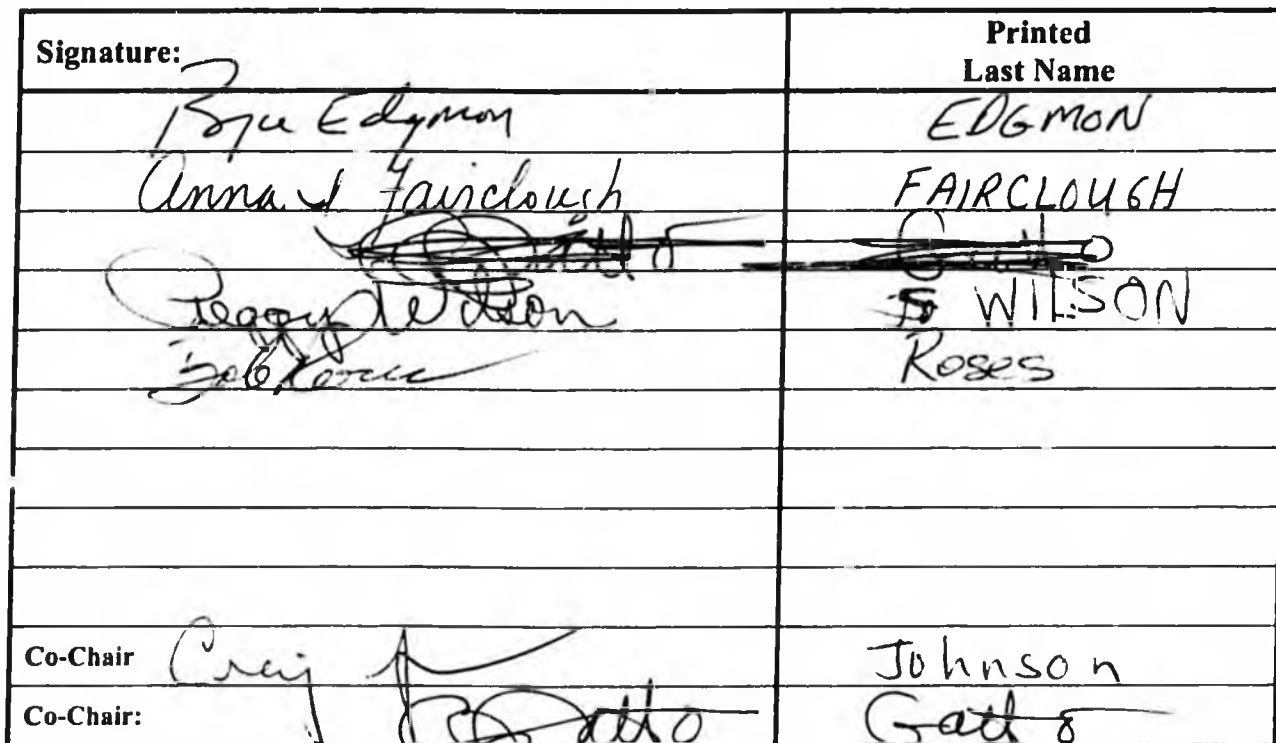 Signature: Printed Last Name
Bryce Edgmon EDGMON
Anna I Fairclough FAIRCLOUGH
Peggy Wilson WILSON
Bob Roses Roses
Co-Chair Craig Johnson
Co-Chair: Gatto Gatto